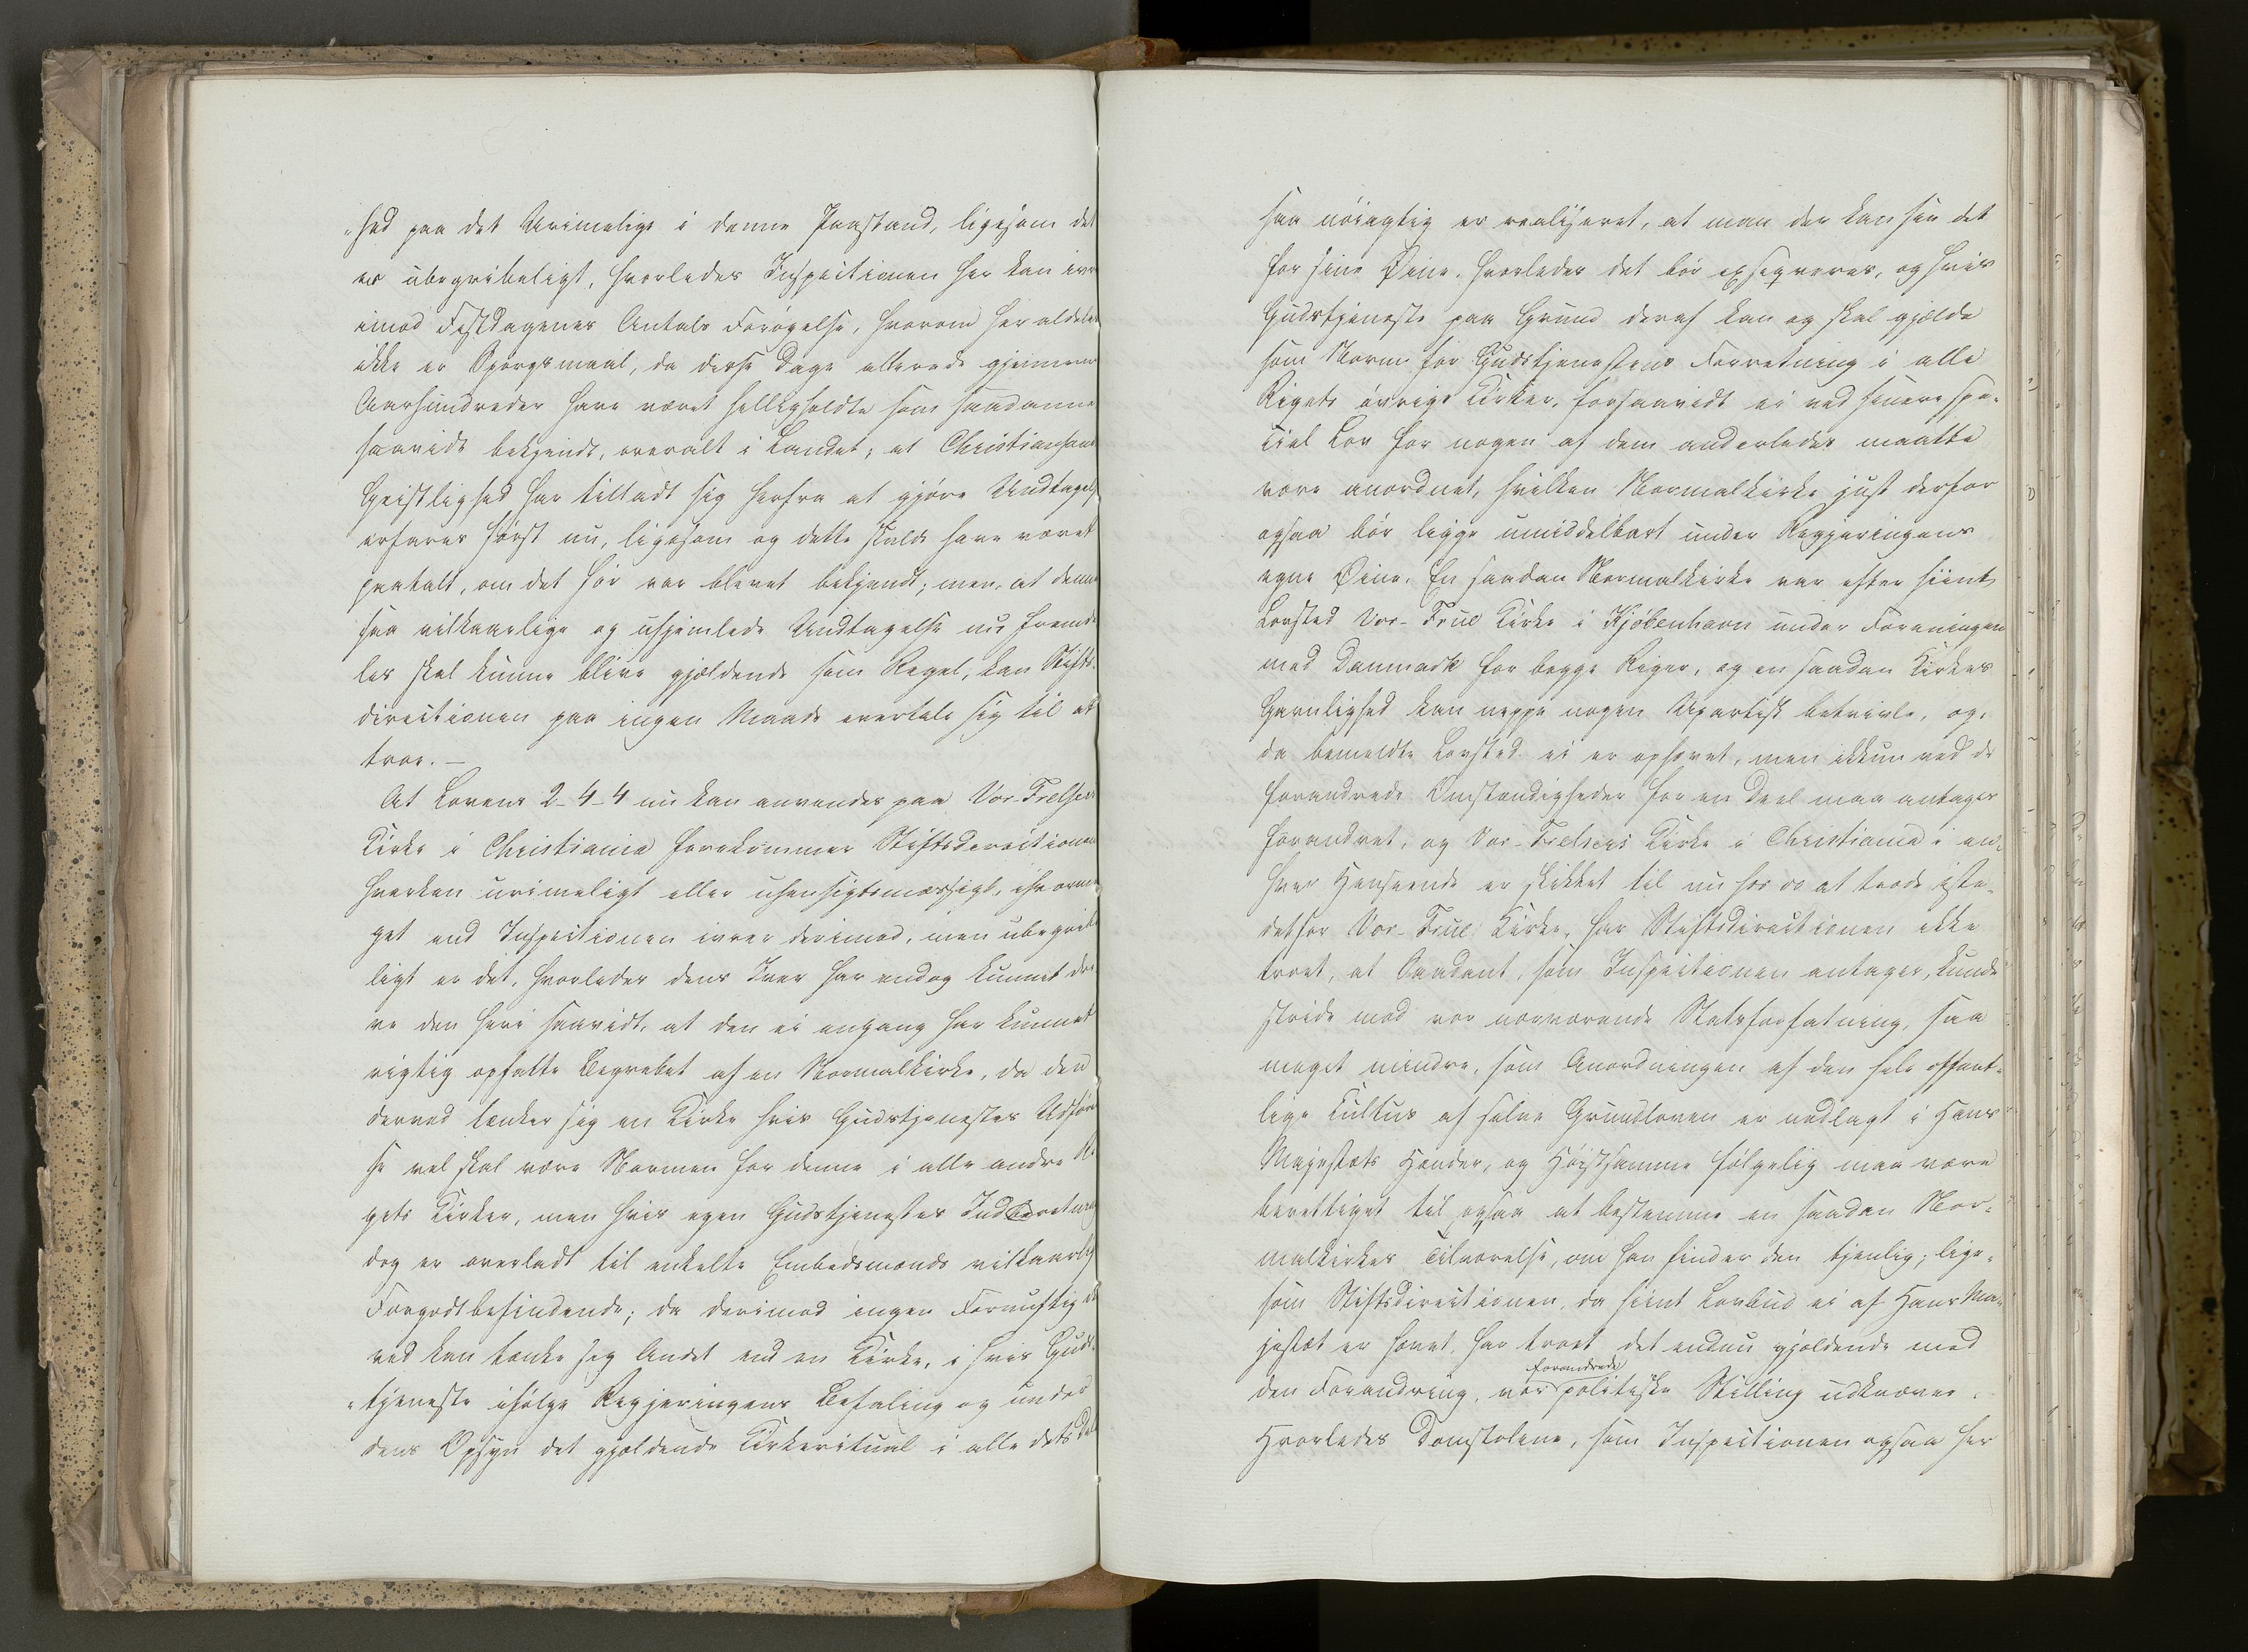 „hed paa det Urimelige i denne Paastand, ligesom det
er ubegribeligt, hvorledes Inspectionen her kan ivre
imod Festdagenes Antals Forøgelse, hvorom her aldeles
ikke er Spørgsmaal, da disse Dage allerede gjennem
Aarhundreder have været helligholdte som saadanne
saavidt bekjendt, overalt i Landet; at Christiansands
Geistlighed har tilladt sig herfra at gjøre Undtagelse
erfares først nu, ligesom og dette skulde have været
paatalt, om det før var blevet bekjendt; men, at denne
saa vilkaarlige og uhjemlede Undtagelse nu fremde
les skal kunne blive gjældende som Regel, kan Stifts-
directionen paa ingen Maade overtale sig til at
troe. –
At Lovens 2-4-4 nu kan anvendes paa Vor-Frelsers
Kirke i Christiania forekommer Stiftsdirectionen
hverken urimeligt eller uhensigtsmæssigt, ihvorme
get end Inspectionen ivrer derimod, men ubegribe
ligt er det, hvorledes dens Iver har endog kunnet dri-
ve den heri saavidt, at den ei engang har kunnet
rigtig opfatte Begrebet af en Normalkirke, da den
derved tænker sig en Kirke hvis Gudstjenestes Udførel
se vel skal være Normen for denne i alle andre Ri
gets Kirker, men hvis egen Gudstjenestes Indretning
dog er overladt til enkelte Embedsmænds vilkaarlige
Forgodtbefindende; da derimod ingen Fornuftig der
ved kan tænke sig Andet end en Kirke, i hvis Guds-
„tjeneste ifølge Regjeringens Befaling og under
dens Opsyn det gjældende Kirkeritual i alle dets Dele
saa nøiagtig er realiseret, at man der kan see det
for sine Øine, hvorledes det bør exseqveres, og hvis
Gudstjeneste paa Grund deraf kan og skal gjælde
som Norm for Gudstjenestens Forretning i alle
Rigets øvrige Kirker, forsaavidt ei ved senere spe-
ciel Lov for nogen af dem anderledes maatte
være anordnet, hvilken Normalkirke just derfor
ogsaa bør ligge umiddelbart under Regjeringens
egne Øine. En saadan Normalkirke var efter hiint
Lovsted Vor-Frue Kirke i Kjøbenhavn under Foreningen
med Danmark for begge Riger, og en saadan Kirkes
Gavnlighed kan neppe nogen Upartisk betvivle, og,
da bemeldte Lovsted ei er ophævet, men ikkun ved de
forandrede Omstændigheder for en Deel maa antages
forandret, og Vor-Frelsers Kirke i Christiania i en-
hver Henseende er skikket til nu hos os at træde iste-
detfor Vor-Frue Kirke, har Stiftsdirectionen ikke
troet, at Saadant, som Inspectionen antager, kunde
stride mod vor nærværende Statsforfatning, saa
meget mindre, som Anordningen af den hele offent-
lige Kultus af selve Grundloven er nedlagt i Hans
Majestæts Hænder, og Høistsamme følgelig maa være
berettiget til ogsaa at bestemme en saadan Nor-
malkirkes Tilværelse, om han finder den tjenlig; lige-
som Stiftsdirectionen, da hiint Lovbud ei af Hans Ma-
jestæt er hævet, har troet det endnu gjældende med
forandrede
den Forandring, vor politiske Stilling udkræver.
Hvorledes Domstolene, som Inspectionen ogsaa her